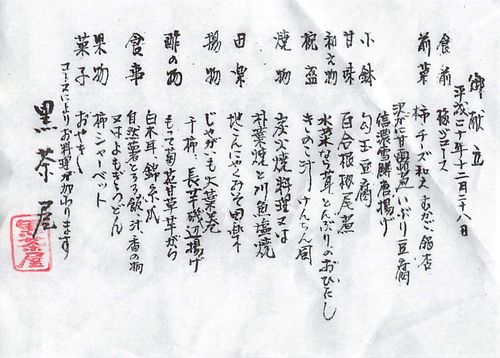 御献立
平成二十年十二月二十八日
食前 梅ジュース
前菜 柿チーズ和え むかご 銀杏
沢がに甘露煮 いぶり豆腐
信濃雪鱒唐揚げ
小鉢 勾玉豆腐
甘味 百合根椒尾煮
和え物 水菜なら茸とんぶりのおひたし
椀盛 きのこ汁 けんちん風
焼物 炭火焼料理又は
朴葉焼と川魚塩焼
田楽 地こんにゃくみそ田楽
揚物 じゃがいも大葉巻
干柿、長芋磯辺揚げ
酢の物 もって菊 芹がら
食事 白木耳、錦糸瓜
自然薯とろろ飯、汁、香の物
又はよもぎうどん
果物 柿シャーベット
菓子 おやき
コースによりお料理が加わります
黒茶屋
黒茶屋